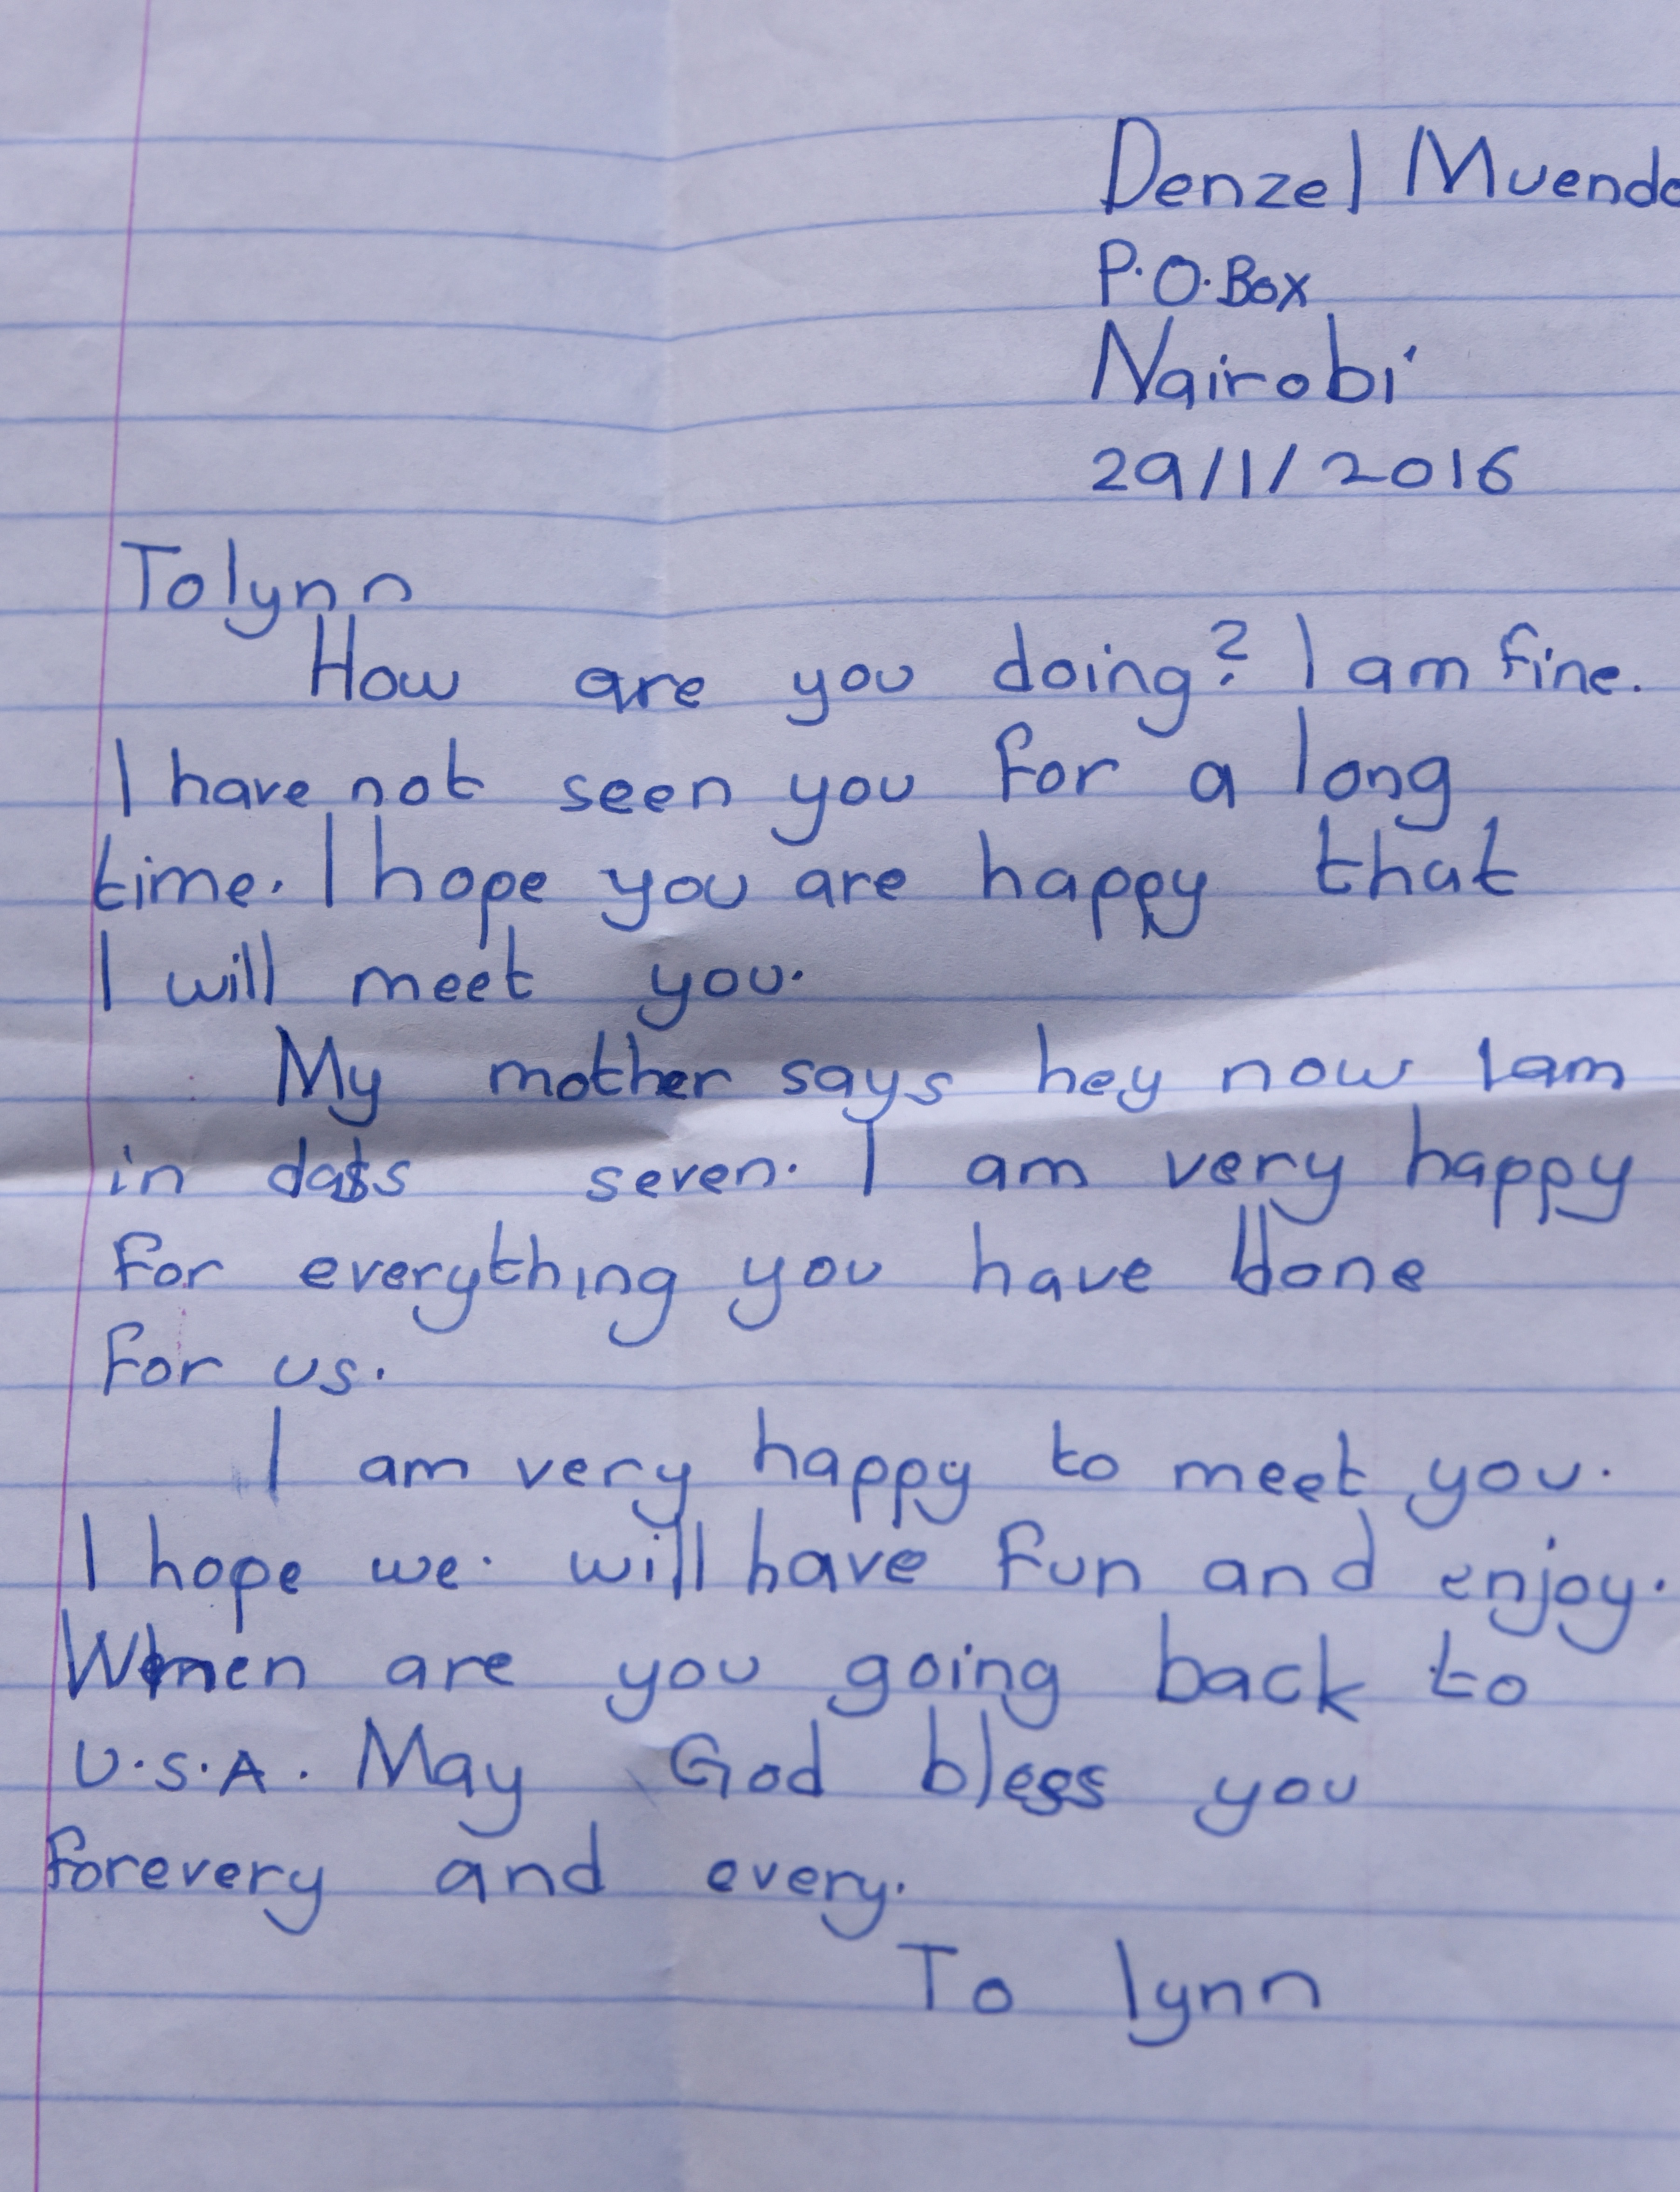 Denzel Muendo
P.O.Box
Nairobi
29/1/2016
Tolynn
How are you doing? I am fine.
I have not seen you for a long
time. I hope you are happy that
I will meet you.
My mother says hey now Iam
in class seven. I am very happy
for everything you have done
for us.
I am very happy to meet you.
I hope we. will have fun and enjoy.
When are you going back to
U.S.A. May God bless you
forevery and every.
To lynn